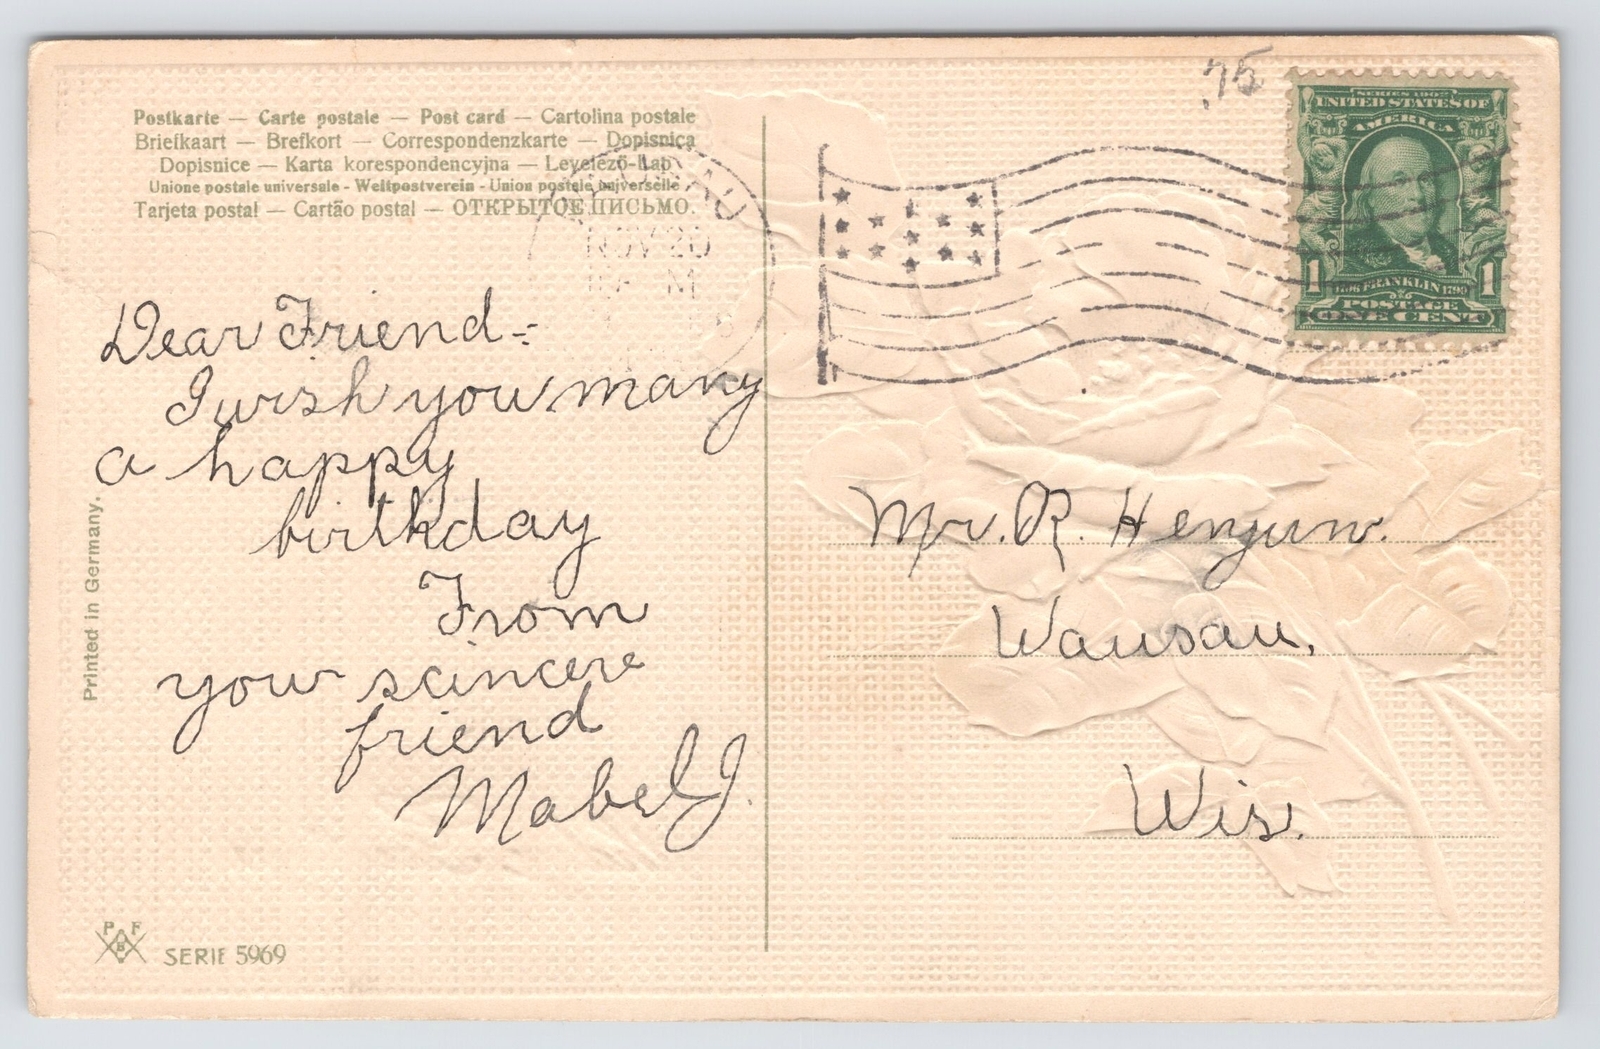 Postkarte — Carte postale — Post card — Cartolina postale
Briefkaart — Brefkort — Correspondenzkarte — Dopisnica
Dopisnice — Karta korespondencyjna — Levelező-Lap.
Unione postale universale - Weltpostverein - Union postale universelle
Tarjeta postal — Cartão postal — ОТКРЫТОЕ ПИСЬМО.
NOV 20
M
Dear Friend-:
I wish you many
a happy
birthday
From
your scincere
friend
Mabel J.
Printed in Germany.
P F
B
SERIE 5969
.75
SERIES 1902
UNITED STATES OF
AMERICA
1 1
1706 FRANKLIN 1790
POSTAGE
ONE CENT
Mr. R.
Wausau,
Wis.